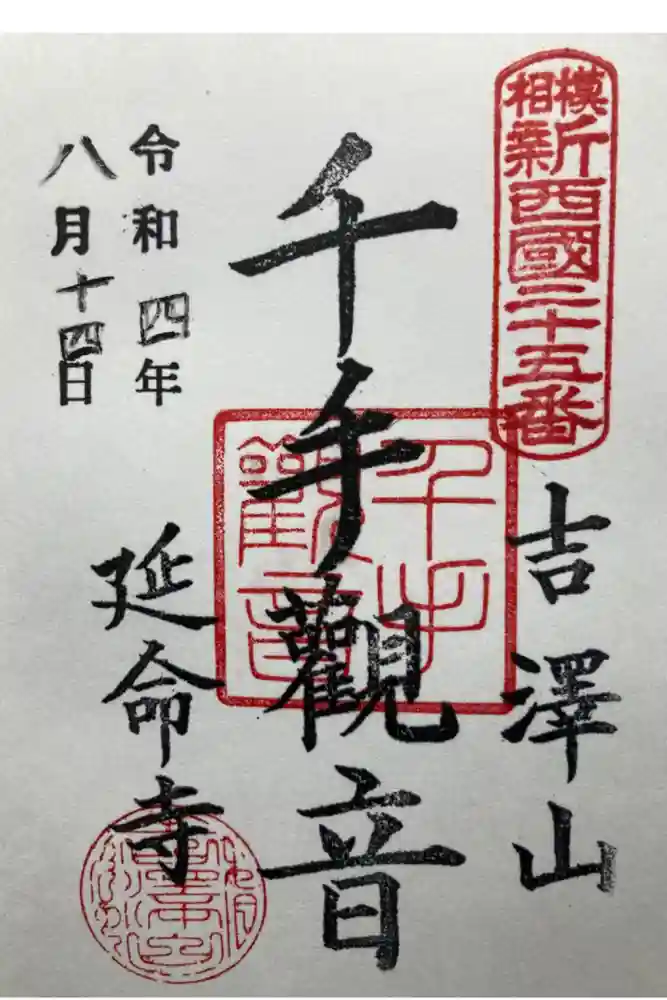 相模新西國二十五番
吉澤山
千手觀音
千手
觀音
令和四年
八月十四日
延命寺